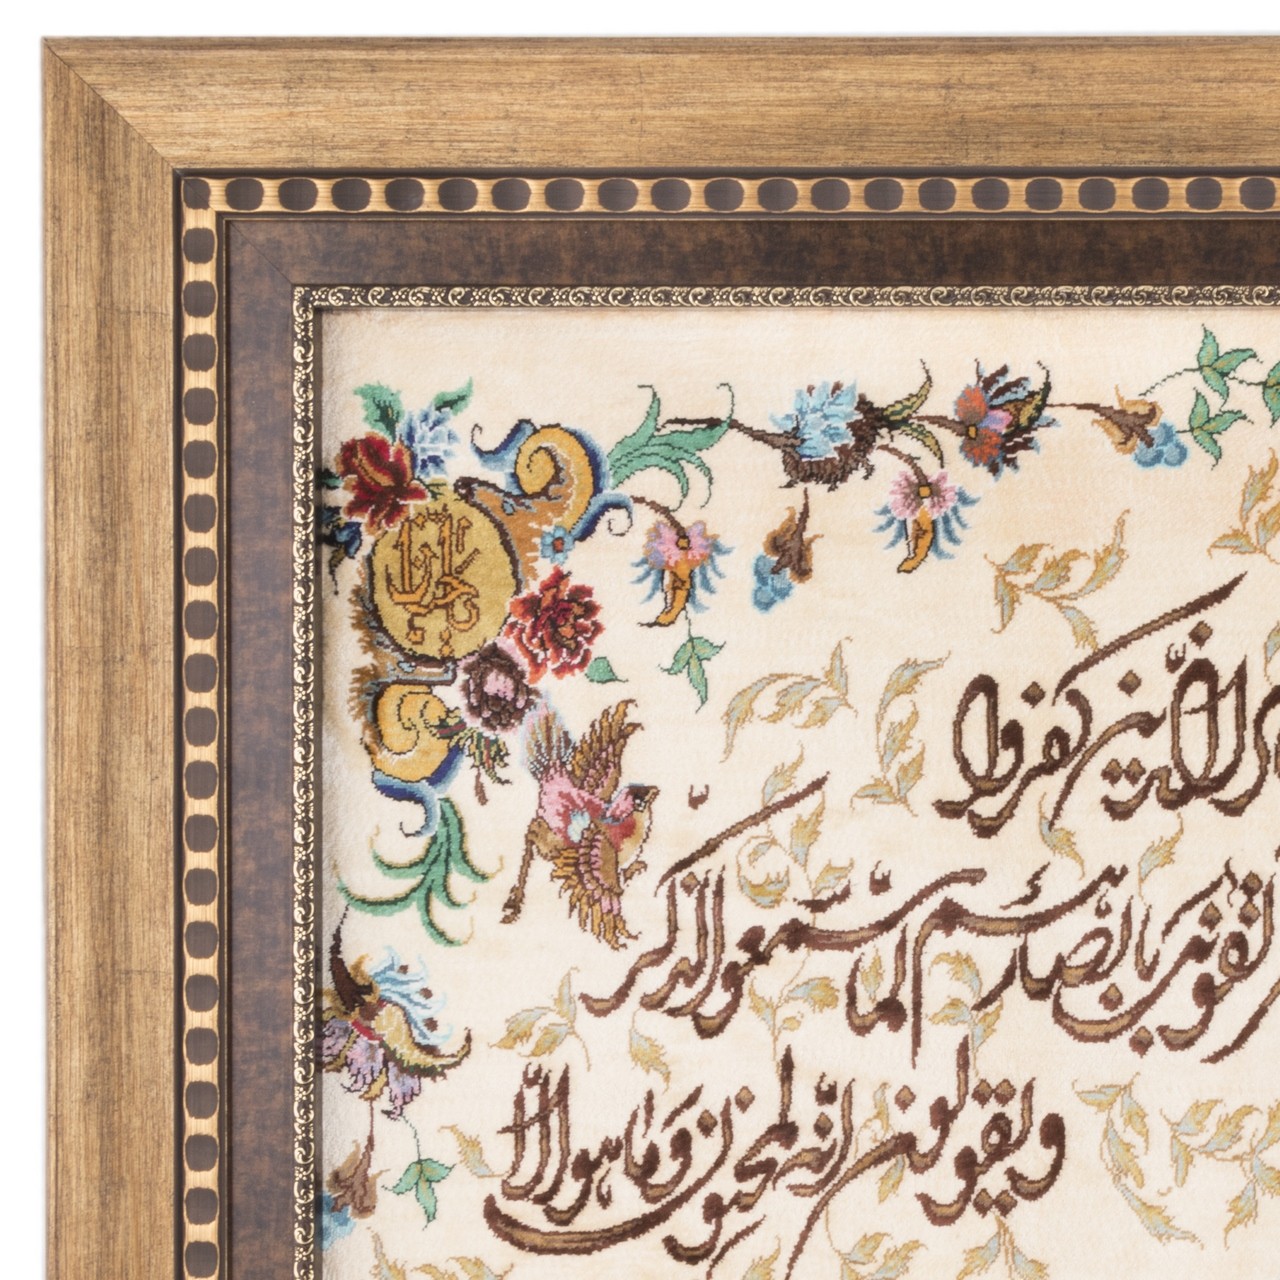 الذین کفروا
لقونک بابصارهم لما سمعوا الذکر
ویقولون انه لمجنون وما هو الا